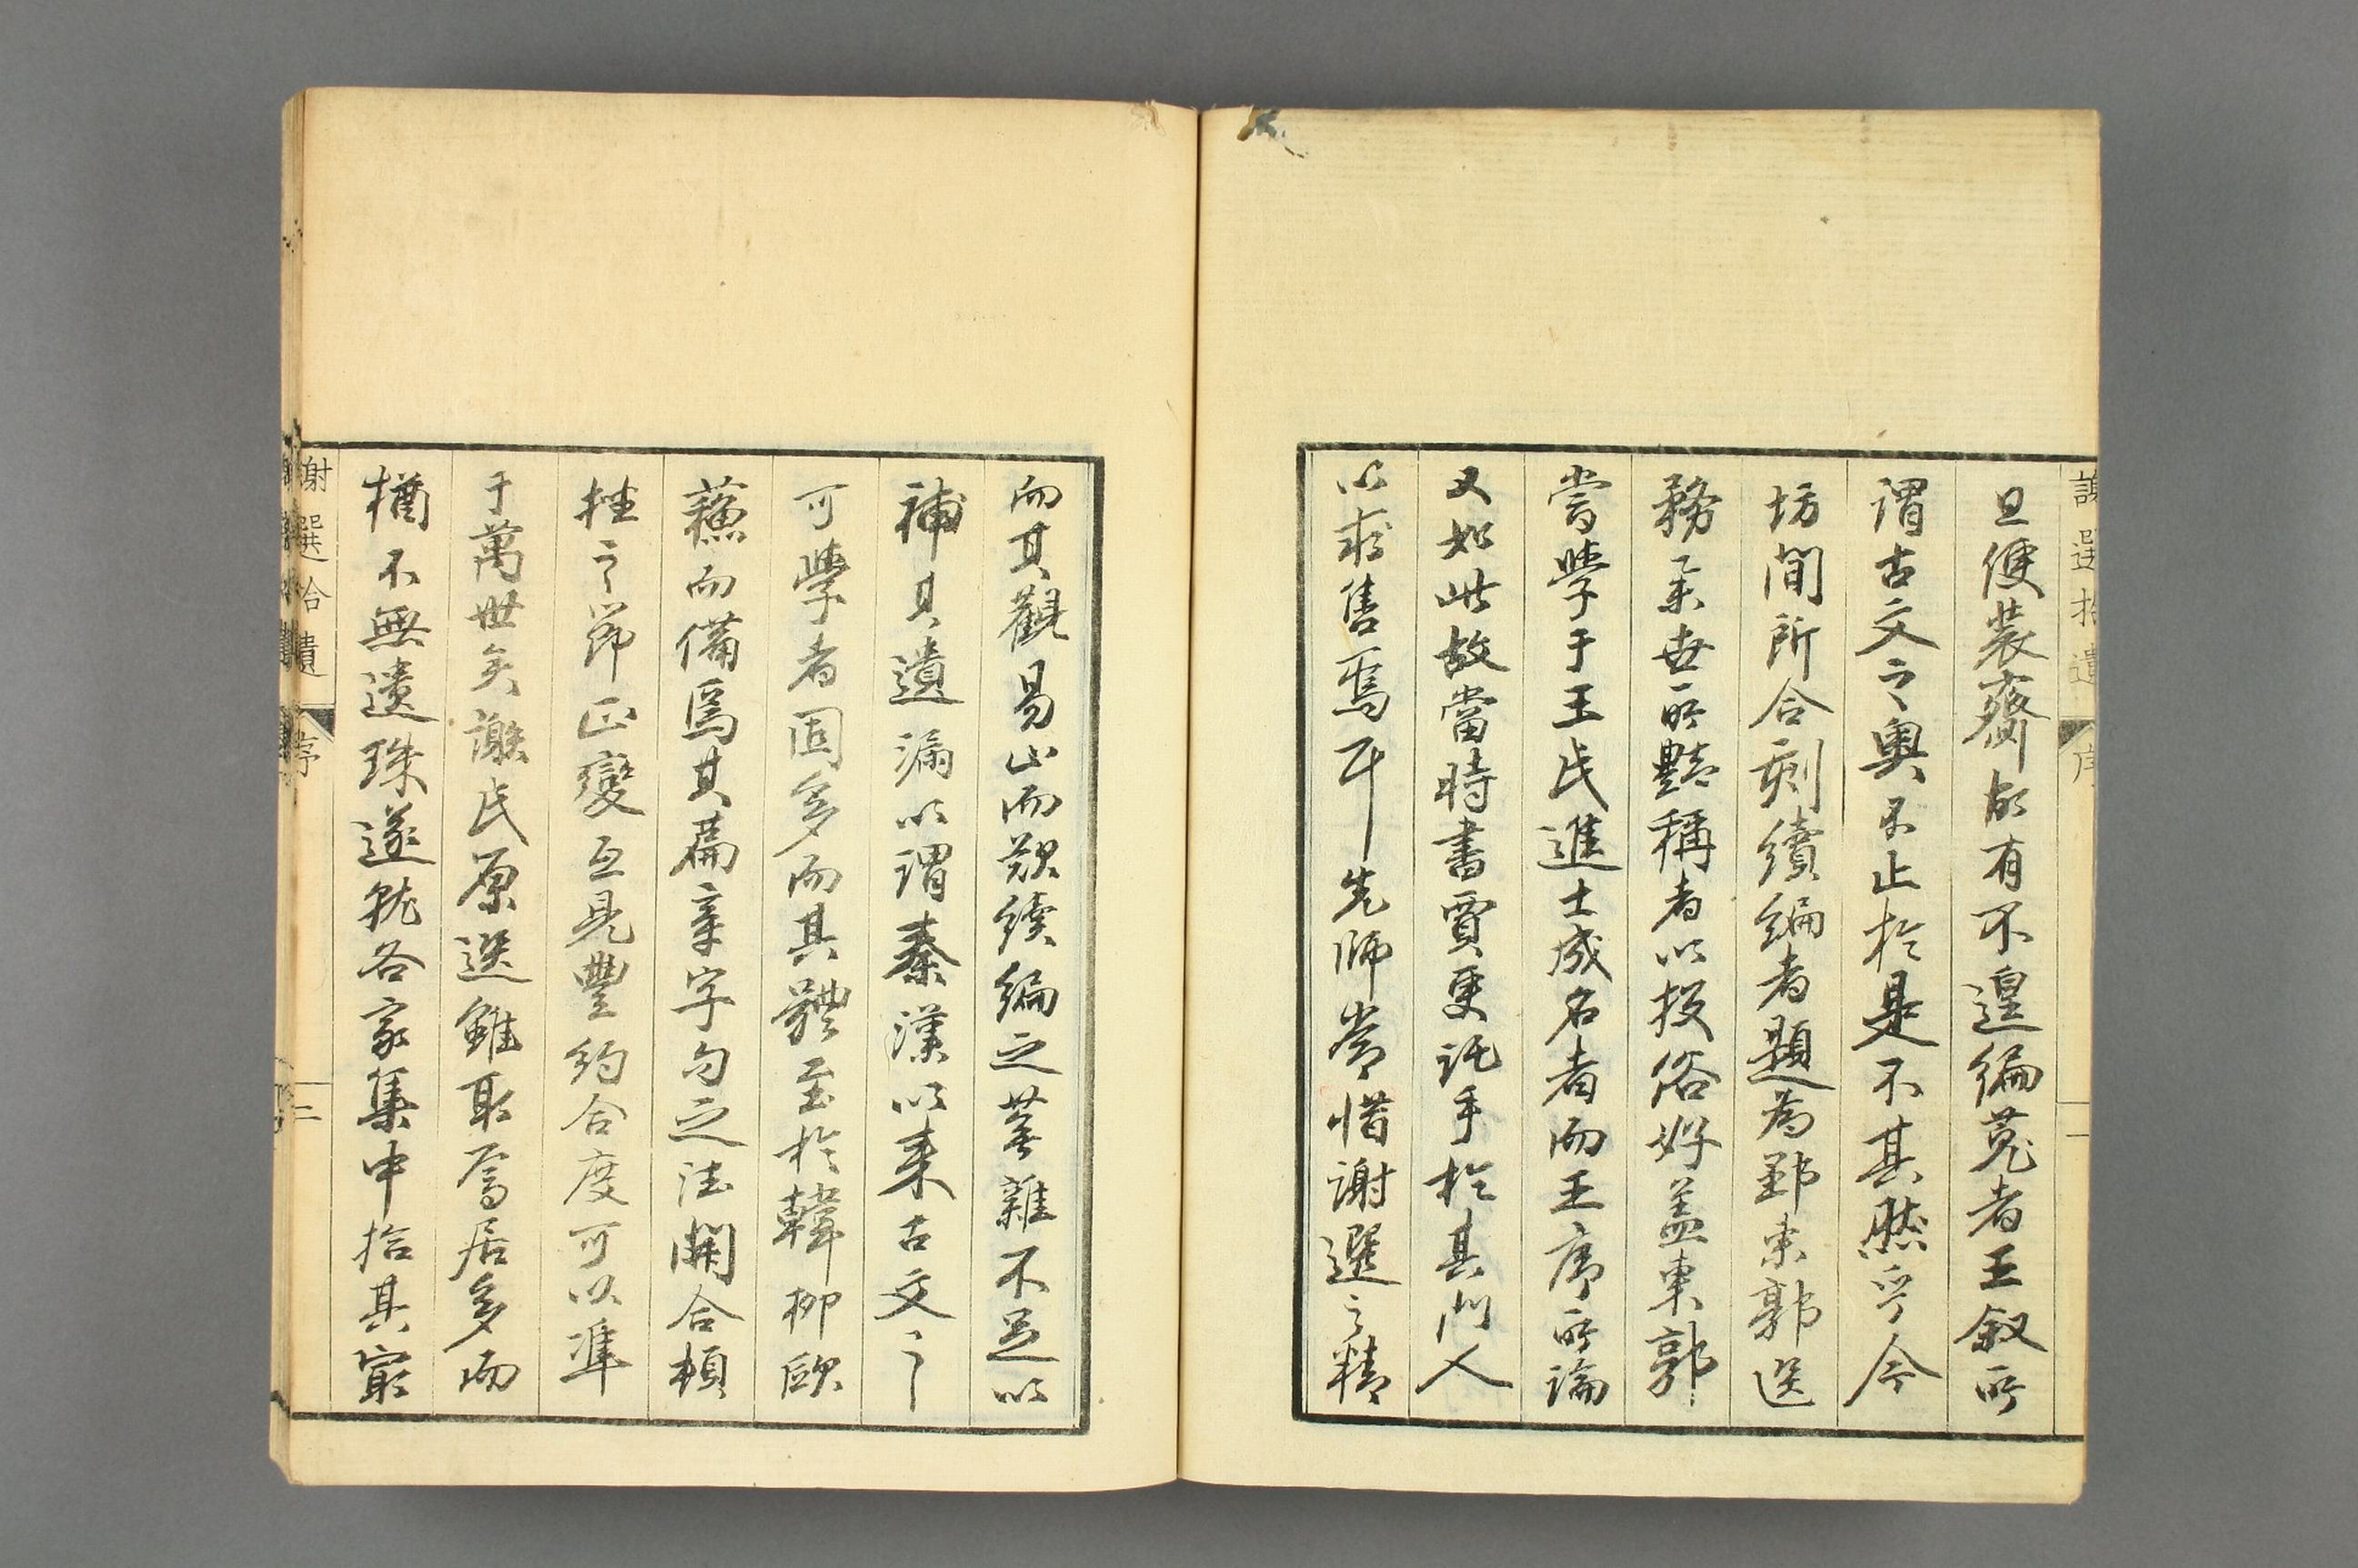 謝選拾遺 序 一
旦便装齎故有不遑編蒐者王叙所
謂古文之奥不止於是不其然乎今
坊間所合刻續編者題為鄒東郭選
務義世所豔稱者以投俗好盖東郭
嘗學于王氏進士成名者而王序所論
又如此故當時書賈更託手於其門人
以求售焉耳先師嘗惜謝選之精
而其觀易止而歎續編之蕪雜不足以
補其遺漏以謂秦漢以来古文之
可學者固多而其體至於韓柳欧
蘓而備焉其篇章字句之法開合頓
挫之節正變互見豐約合度可以準
于萬世矣謝氏原選雖取舊居多而
猶不無遺珠遂就各家集中拾其寂
謝選拾遺 序 二